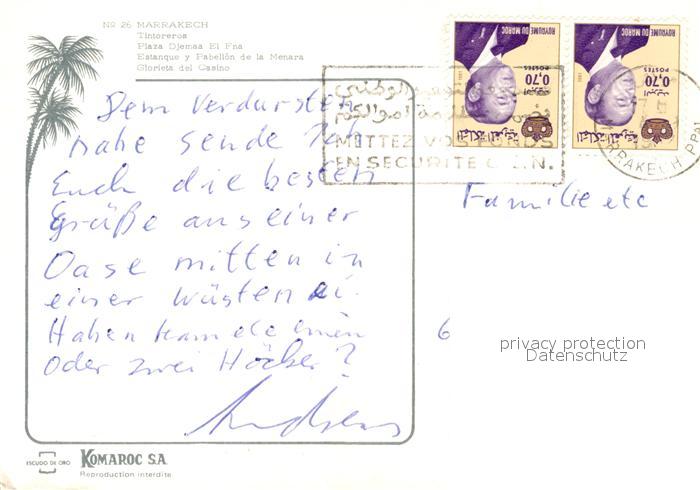 Nº 26 MARRAKECH
Tintoreros
Plaza Djemaa El Fna
Estanque y Pabellón de la Menara
Glorieta del Casino
ROYAUME DU MAROC
POSTES
0,70
المملكة المغربية
ROYAUME DU MAROC
POSTES
0,70
المملكة المغربية
METTEZ VO
EN SECURITE
MARRAKECH PPAL
Dem Verdursten
nahe sende ich
Euch die besten
Grüße aus einer
Oase mitten in
einer Wüstenei.
Haben Kamele einen
oder zwei Höcker?
Andreas
Familie etc
6
privacy protection
Datenschutz
ESCUDO DE ORO
KOMAROC S.A.
Reproduction interdite